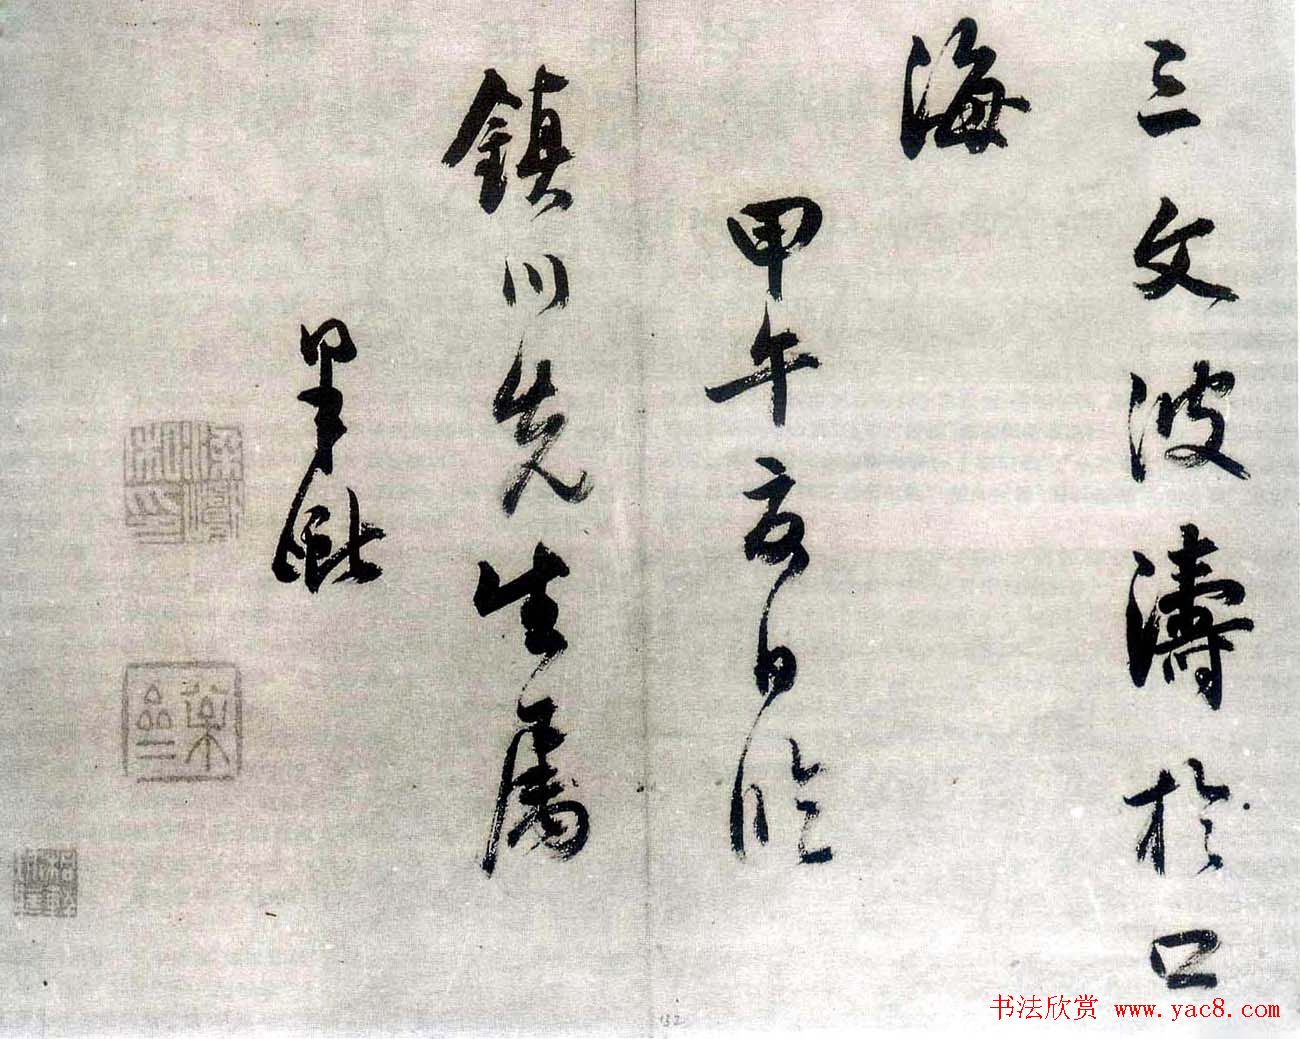 三文波濤於口
海
甲午夏日臨
鎮川先生屬
书法欣赏 www.yac8.com